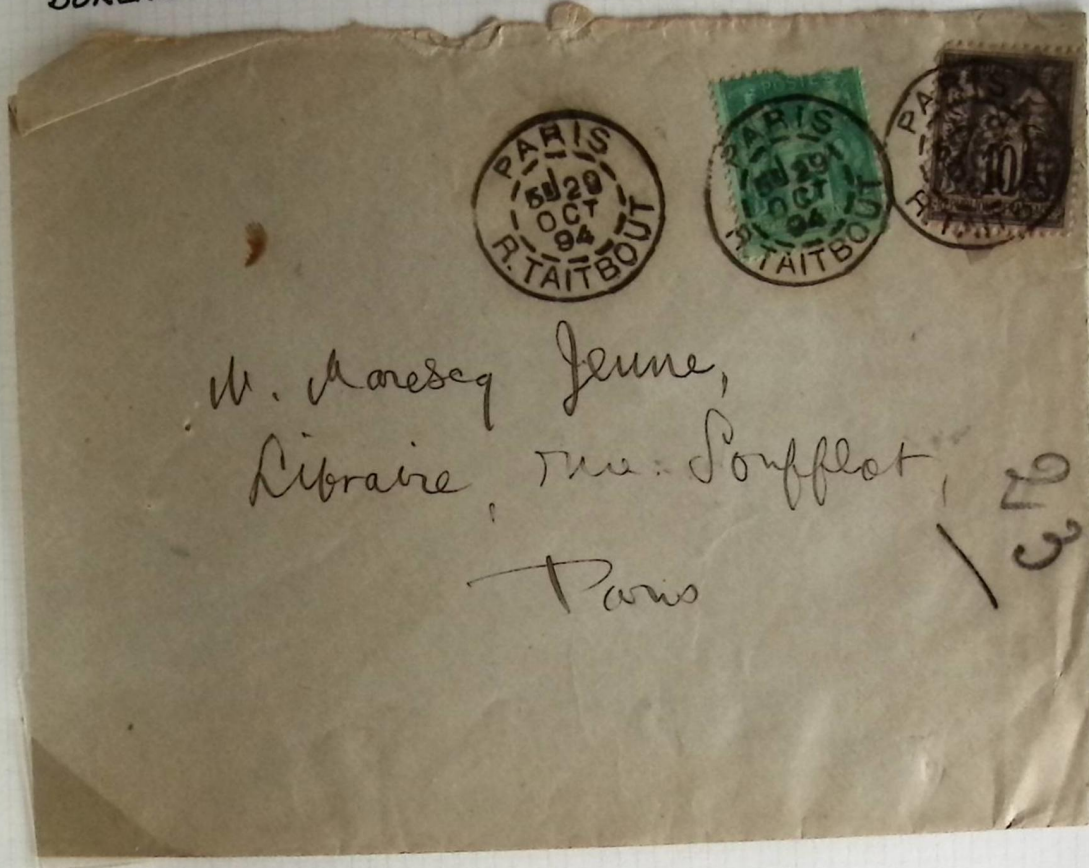 PARIS
5E 29
OCT
94
R. TAITBOUT
PARIS
5E 29
OCT
94
R. TAITBOUT
10
M. Marescq Jeune,
Libraire, rue Soufflot,
Paris
213